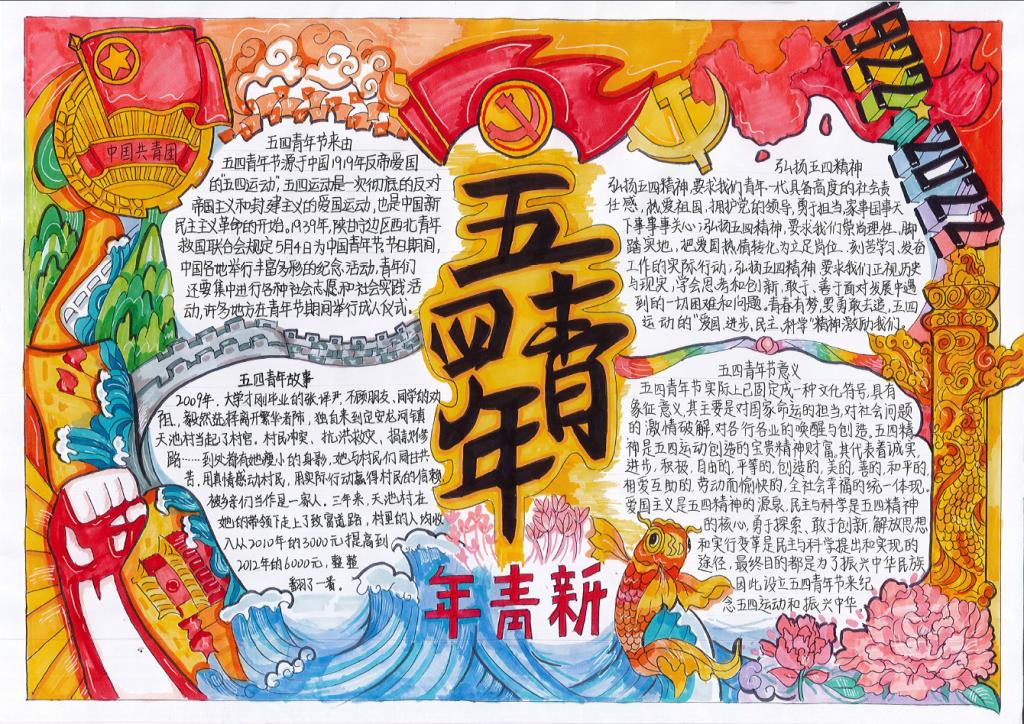 中国共青团
1922
2022
五四青年
新青年
五四青年节来由
五四青年节源于中国1919年反帝爱国
的"五四运动",五四运动是一次彻底的反对
帝国主义和封建主义的爱国运动,也是中国新
民主主义革命的开始。1939年,陕甘宁边区西北青年
救国联合会规定5月4日为中国青年节节日期间,
中国各地举行丰富多彩的纪念活动,青年们
还要集中进行各种社会志愿和社会实践活
动,许多地方在青年节期间举行成人仪式。
弘扬五四精神
弘扬五四精神,要求我们青年一代具备高度的社会责
任感,热爱祖国,拥护党的领导,勇于担当,家事国事天
下事事事关心;弘扬五四精神,要求我们崇尚理性,脚
踏实地,把爱国热情转化为立足岗位、刻苦学习、发奋
工作的实际行动;弘扬五四精神,要求我们正视历史
与现实,学会思考和创新,敢于、善于面对发展中遇
到的一切困难和问题。青春有梦,要勇敢去追,五四
运动的"爱国、进步、民主、科学"精神激励我们。
五四青年故事
2009年,大学才刚毕业的张评尹,不顾朋友、同学的劝
阻,毅然选择离开繁华省师,独自来到定安龙河镇
天池村当起了村官,村民冲突、抗洪救灾、损毁修
路……到处都有她瘦小的身影,她与村民们同甘共
苦,用真情感动村民,用实际行动赢得村民的信赖,
被乡亲们当作是一家人。三年来,天池村在
她的带领下走上了致富道路,村里的人均收
入从2010年的3000元提高到
2012年的6000元,整整
翻了一番。
五四青年节意义
五四青年节实际上已固定成一种文化符号,具有
象征意义,其主要是对国家命运的担当,对社会问题
的激情破解,对各行各业的唤醒与创造,五四精
神是五四运动创造的宝贵精神财富,其代表着诚实、
进步、积极、自由的、平等的、创造的、美的、善的、和平的、
相爱互助的、劳动而愉快的,全社会幸福的统一体现。
爱国主义是五四精神的源泉,民主与科学是五四精神
的核心,勇于探索、敢于创新、解放思想
和实行变革是民主与科学提出和实现的
途径,最终目的都是为了振兴中华民族,
因此设立五四青年节来纪
念五四运动和振兴中华。